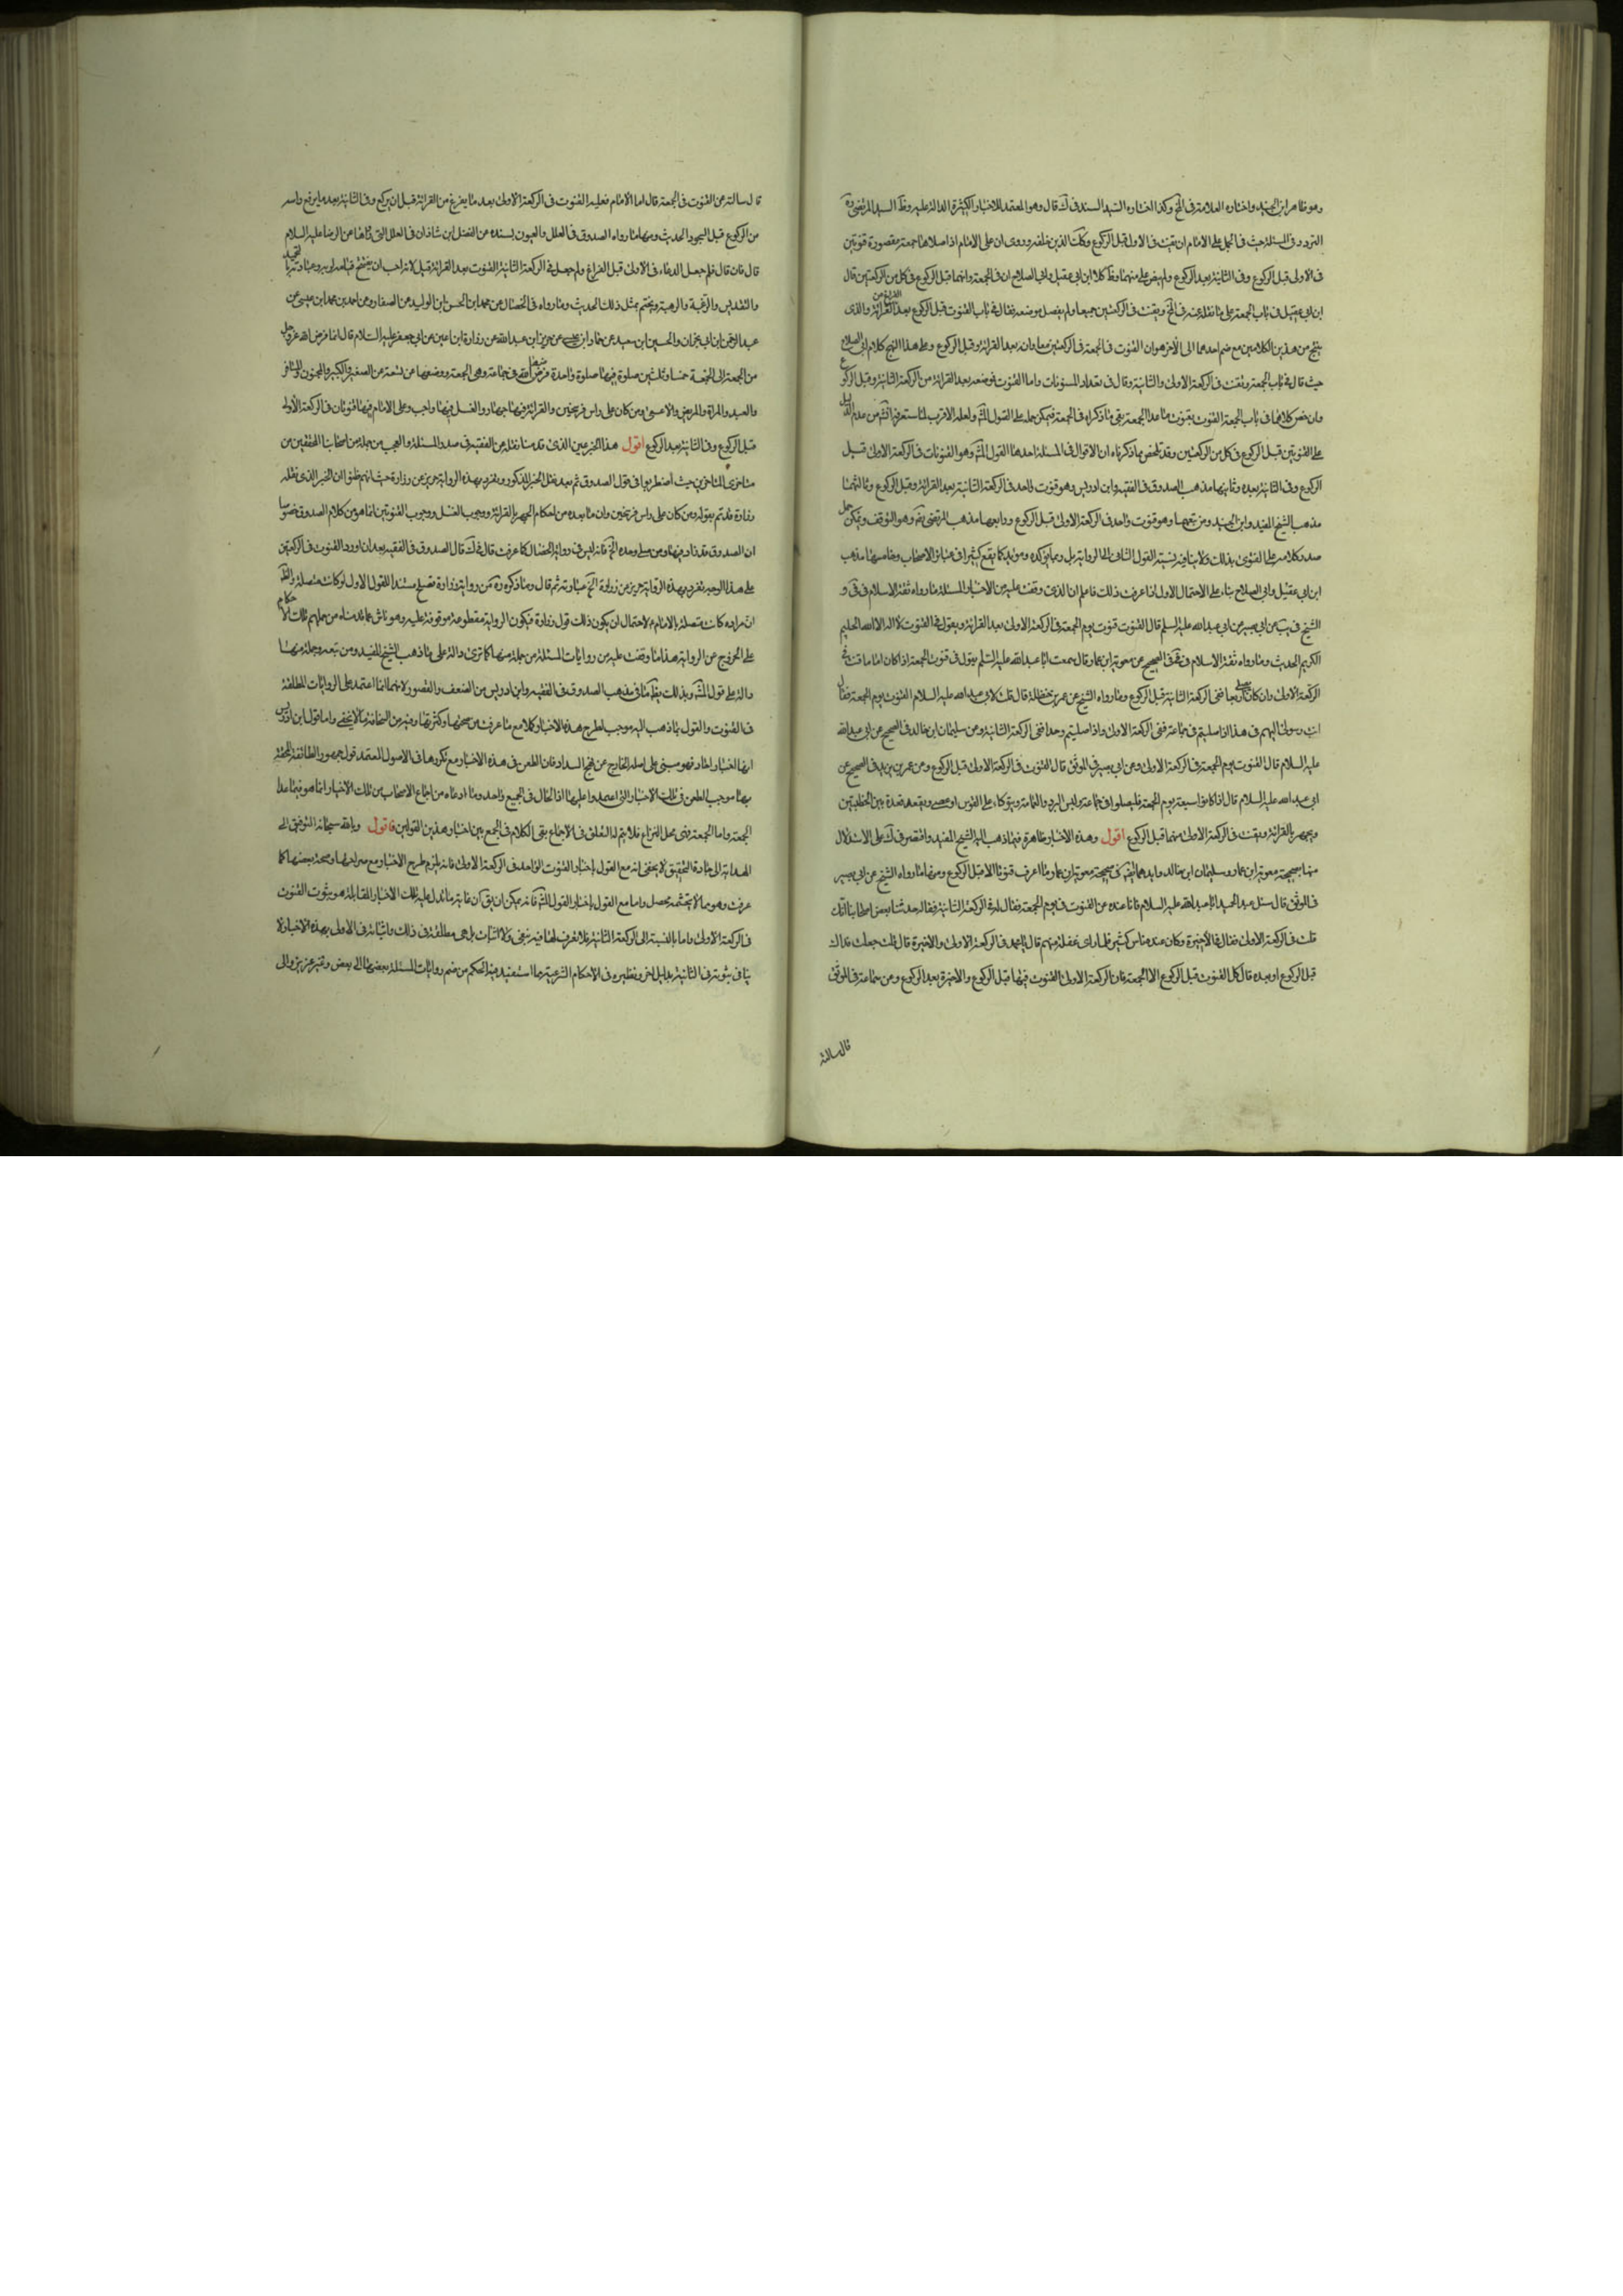 وهو ظاهر ابن الجنيد واختاره العلامة في المخ وكذا اختاره السيد السند في ك قال وهو المعتمد للاخبار الكثيرة الدالة عليه وظ السيد المرتضى ره
التردد في المسئلة حيث في الجمل على الامام ان يقنت في الاولى قبل الركوع وكك الذين خلفه وروى ان على الامام اذا صلاها جمعة مقصورة قنوتين
في الاولى قبل الركوع وفي الثانية بعد الركوع ولم يفصل منهما وظ كلا ابن ابي عقيل وابي الصلاح ان في الجمعة وانهما قبل الركوع في كل من الركعتين قال
ابن ابي عقيل في باب الجمعة على ما نقل عنه في المخ ويقنت في الركعتين جميعا ولم يفصل موضعه فقال في باب القنوت قبل الركوع بعد الفراغ من القرائة والذي
ينتج من هذين الكلامين مع ضم احدهما الى الآخر هو ان القنوت في الجمعة في الركعتين معا وانه بعد القرائة وقبل الركوع وعلى هذا النهج كلام ابي الصلاح
حيث قال في باب الجمعة ويقنت في الركعة الاولى والثانية وقال في تعداد المسنونات واما القنوت فموضعه بعد القرائة من الركعة الثانية وقبل الركوع
وان خص كلامهما في باب الجمعة القنوت بقنوت ما عدا الجمعة بقي ما ذكراه في الجمعة فيمكن حمله على القول المش ولعله الاقرب لما ستعرفه آنفا من عدم الدليل
على القنوتين قبل الركوع في كل من الركعتين وقد تلخص بما ذكرناه ان الاقوال في المسئلة احدها القول المش وهو القنوتان في الركعة الاولى قبل
الركوع وفي الثانية بعده وثانيها مذهب الصدوق في الفقيه وابن ادريس وهو قنوت واحد في الركعة الثانية بعد القرائة وقبل الركوع وثالثها
مذهب الشيخ المفيد وابن الجنيد ومن تبعهما وهو قنوت واحد في الركعة الاولى قبل الركوع ورابعها مذهب المرتضى رضه وهو التوقف ويمكن حمل
صدر كلامه على الفتوى بذلك ولا ينافيه نسبة القول الثاني الى الرواية بل ربما يؤكده ومؤيد كما يقع كثيرا في عبائر الاصحاب وخامسها مذهب
ابن ابي عقيل وابي الصلاح بناء على الاحتمال الاول اذا عرفت ذلك فاعلم ان الذي وقفت عليه من الاخبار المسئلة ما رواه ثقة الاسلام في في و
الشيخ في يب عن ابي بصير عن ابي عبد الله عليه السلم قال القنوت قنوت يوم الجمعة في الركعة الاولى بعد القرائة ويقول في القنوت لا اله الا الله الحليم
الكريم الحديث وما رواه ثقة الاسلام في في في الصحيح عن معوية ابن عمار قال سمعت ابا عبد الله عليه السلم يقول في قنوت الجمعة اذا كان اماما قنت في
الركعة الاولى وان كان يصلي اربعا ففي الركعة الثانية قبل الركوع وما رواه الشيخ عن عمر بن حنظلة قال قلت لابي عبد الله عليه السلام القنوت يوم الجمعة فقال
انت رسولي اليهم في هذا اذا صليتم في جماعة ففي الركعة الاولى واذا صليتم وحدا ففي الركعة الثانية وعن سليمان ابن خالد في الصحيح عن ابي عبد الله
عليه السلام قال القنوت يوم الجمعة في الركعة الاولى وعن ابي بصير في الموثق قال القنوت في الركعة الاولى قبل الركوع وعن عمر بن يزيد في الصحيح عن
ابي عبد الله عليه السلام قال اذا كانوا سبعة يوم الجمعة فليصلوا في جماعة وليلبس البرد والعمامة ويتوكاء على القوس او عصى وليقعد قعدة بين الخطبتين
ويجهر بالقرائة ويقنت في الركعة الاولى منهما قبل الركوع اقول وهذه الاخبار ظاهرة فيما ذهب اليه الشيخ المفيد واقتصر في ك على الاستدلال
منها بصحيحة معوية ابن عمار وسليمان ابن خالد وايدهما بصحيحة معوية ابن عمار وما اعرف قنوتا الا قبل الركوع ومنها ما رواه الشيخ عن ابي بصير
في الموثق قال سئل عبد الحميد ابا عبد الله عليه السلام وانا عنده عن القنوت في يوم الجمعة فقال له في الركعة الثانية فقال له حدثنا بعض اصحابنا انك
قلت في الركعة الاولى فقال في الأخيرة وكان عنده ناس كثير فلما راى غفلة منهم قال يابا محمد في الركعة الاولى والاخيرة قال قلت جعلت فداك
قبل الركوع او بعده قال كل القنوت قبل الركوع الا الجمعة فان الركعة الاولى القنوت فيها قبل الركوع والاخيرة بعد الركوع وعن سماعة في الموثق
قال سالته
قال سالته عن القنوت في الجمعة قال اما الامام فعليه القنوت في الركعة الاولى بعد ما يفرغ من القرائة قبل ان يركع وفي الثانية بعد ما يرفع راسه
من الركوع قبل السجود الحديث ومنها ما رواه الصدوق في العلل والعيون بسنده عن الفضل ابن شاذان في العلل التي رواها عن الرضا عليه السلام
قال فان قال فلم جعل الدعاء في الاولى قبل القرائة ولم جعل في الركعة الثانية القنوت بعد القرائة قيل لانه احب ان يفتتح قيامه لربه وعبادته بالتحميد
والتقديس والرغبة والرهبة ويختم بمثل ذلك الحديث وما رواه في الخصال عن محمد ابن الحسن ابن الوليد عن الصفار وعن احمد بن محمد ابن عيسى عن
عبد الرحمن ابن ابي نجران والحسين ابن سعيد عن حماد ابن عيسى عن حريز ابن عبد الله عن زرارة ابن اعين عن ابي جعفر عليه السلام قال انما فرض الله عز وجل
من الجمعة الى الجمعة خمسا وثلثين صلوة فيها صلوة واحدة فرضها الله في جماعة وهي الجمعة ووضعها عن تسعة عن الصغير والكبير والمجنون والمسافر
والعبد والمراة والمريض والاعمى ومن كان على راس فرسخين والقرائة فيها جهار والغسل فيها واجب وعلى الامام فيها قنوتان في الركعة الاولى
قبل الركوع وفي الثانية بعد الركوع اقول هذا الخبر عين الذي قدمنا نقله عن الفقيه في صدر المسئلة والعجب من جملة من اصحابنا المحققين من
متاخري المتاخرين حيث اضطربوا في قول الصدوق ثم بعد نقل الخبر المذكور وتفرد بهذه الرواية حريز عن زرارة حيث انهم ظنوا ان الخبر الذي نقله
زرارة قد تم بقوله ومن كان على راس فرسخين وان ما بعده من احكام الجهر بالقرائة ووجوب الغسل ووجوب القنوتين انما هو من كلام الصدوق خصوصا
ان الصدوق قد زاد فيها ومن صلى وحده الخ فانه ليس في رواية الخصال كما عرفت قال في ك قال الصدوق في الفقيه بعد ان اورد القنوت في الركعتين
على هذا الوجه تفرد بهذه الرواية حريز عن زرارة الخ عبارته ثم قال وما ذكره ره من رواية زرارة تصلح مستندا للقول الاول لو كانت متصلة والظ
ان مراده كانت متصلة بالامام ع لاحتمال ان يكون ذلك قول زرارة فيكون الرواية مقطوعة موقوفة عليه وهو ناش عما قدمناه من حملهم تلك الاحكام
على الخروج عن الرواية هذا ما وقفت عليه من روايات المسئلة من جملة منها كما ترى دالة على ما ذهب الشيخ المفيد ومن تبعه وجملة منها
دالة على قول المش وبذلك يظهر ما في مذهب الصدوق في الفقيه وابن ادريس من الضعف والقصور لانهما انما اعتمدا على الروايات المطلقة
في القنوت والقول بما ذهب اليه موجب لطرح هذه الاخبار كلا مع ما عرفت من صحتها وكثرتها وفيه من الشناعة ما لا يخفى واما قول ابن ادريس
انها اخبار احاد فهو مبني على اصله الخارج عن نهج السداد فان الطعن في هذه الاخبار مع تكررها في الاصول المعتمد قول جمهور الطائفة المحقة
بها موجب الطعن في تلك الاخبار التي اعتمد واعليها اذ الحال في الجميع واحد وما ادعاه من اجماع الاصحاب من تلك الاخبار انما هو فيما عدا
الجمعة واما الجمعة ففي محل النزاع فلا يتم له التعلق في الاجماع بقي الكلام في الجمع بين اخبار هذين القولين فاقول وبالله سبحانه التوفيق الى
الهداية الى جادة التحقيق لا يخفى انه مع القول باخبار القنوت الواحد في الركعة الاولى فانه يلزم طرح الاخبار مع صراحتها وصحة بعضها كما
عرفت وهو مما لا يجتشمه محصل واما مع القول باخبار القول المش فانه يمكن ان يق ان غاية ما تدل عليه تلك الاخبار المقابلة هو ثبوت القنوت
في الركعة الاولى واما بالنسبة الى الركعة الثانية فلا تعرض لها فيه بنفي ولا اثبات بل هي مطلقة في ذلك واثباته في الاولى بهذه الاخبار لا
ينافي ثبوته في الثانية بدليل اخر ونظيره في الاحكام الشرعية مما استفيد فيه الحكم من ضم روايات المسئلة بعضها الى بعض وغير عزيز والى